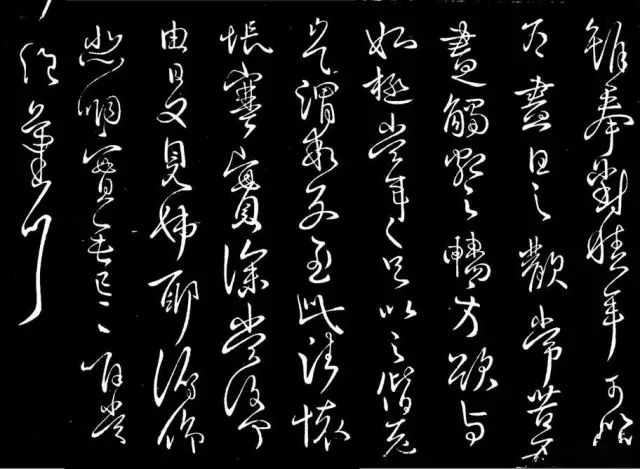 雖奉對積年可以
為盡日之歡常苦不
盡觸類之暢方欲與
姊極當年之足以之偕老
豈謂乖別至此諸懷
悵塞實深當復何
由日夕見姊耶俯仰
悲咽實無已已唯當
絕氣耳